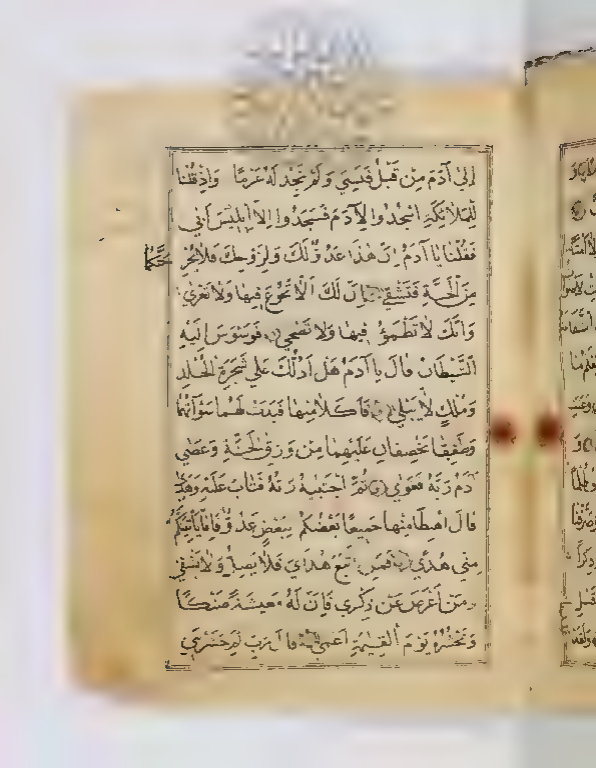 إِلىٰ آدَمَ مِنْ قَبْلُ فَنَسِيَ وَلَمْ نَجِدْ لَهُ عَزْمًا وَاِذْ قُلْنَا
لِلْمَلَائِكَةِ اسْجُدُوا لِآدَمَ فَسَجَدُوا اِلَّا اِبْلِيسَ اَبٰى
فَقُلْنَا يَا آدَمُ اِنَّ هٰذَا عَدُوٌّ لَكَ وَلِزَوْجِكَ فَلَا يُخْرِجَنَّكُمَا
مِنَ الْجَنَّةِ فَتَشْقٰى اِنَّ لَكَ اَلَّا تَجُوعَ فِيهَا وَلَا تَعْرٰى
وَاَنَّكَ لَا تَظْمَؤُ فِيهَا وَلَا تَضْحٰى فَوَسْوَسَ اِلَيْهِ
الشَّيْطَانُ قَالَ يَا آدَمُ هَلْ اَدُلُّكَ عَلٰى شَجَرَةِ الْخُلْدِ
وَمُلْكٍ لَا يَبْلٰى فَاَكَلَا مِنْهَا فَبَدَتْ لَهُمَا سَوْآتُهُمَا
وَطَفِقَا يَخْصِفَانِ عَلَيْهِمَا مِنْ وَرَقِ الْجَنَّةِ وَعَصٰى
آدَمُ رَبَّهُ فَغَوٰى ثُمَّ اجْتَبٰيهُ رَبُّهُ فَتَابَ عَلَيْهِ وَهَدٰى
قَالَ اهْبِطَا مِنْهَا جَمِيعًا بَعْضُكُمْ لِبَعْضٍ عَدُوٌّ فَاِمَّا يَأْتِيَنَّكُمْ
مِنِّي هُدًى فَمَنِ اتَّبَعَ هُدَايَ فَلَا يَضِلُّ وَلَا يَشْقٰى
وَمَنْ اَعْرَضَ عَنْ ذِكْرِي فَاِنَّ لَهُ مَعِيشَةً ضَنْكًا
وَنَحْشُرُهُ يَوْمَ الْقِيٰمَةِ اَعْمٰى قَالَ رَبِّ لِمَ حَشَرْتَنِي